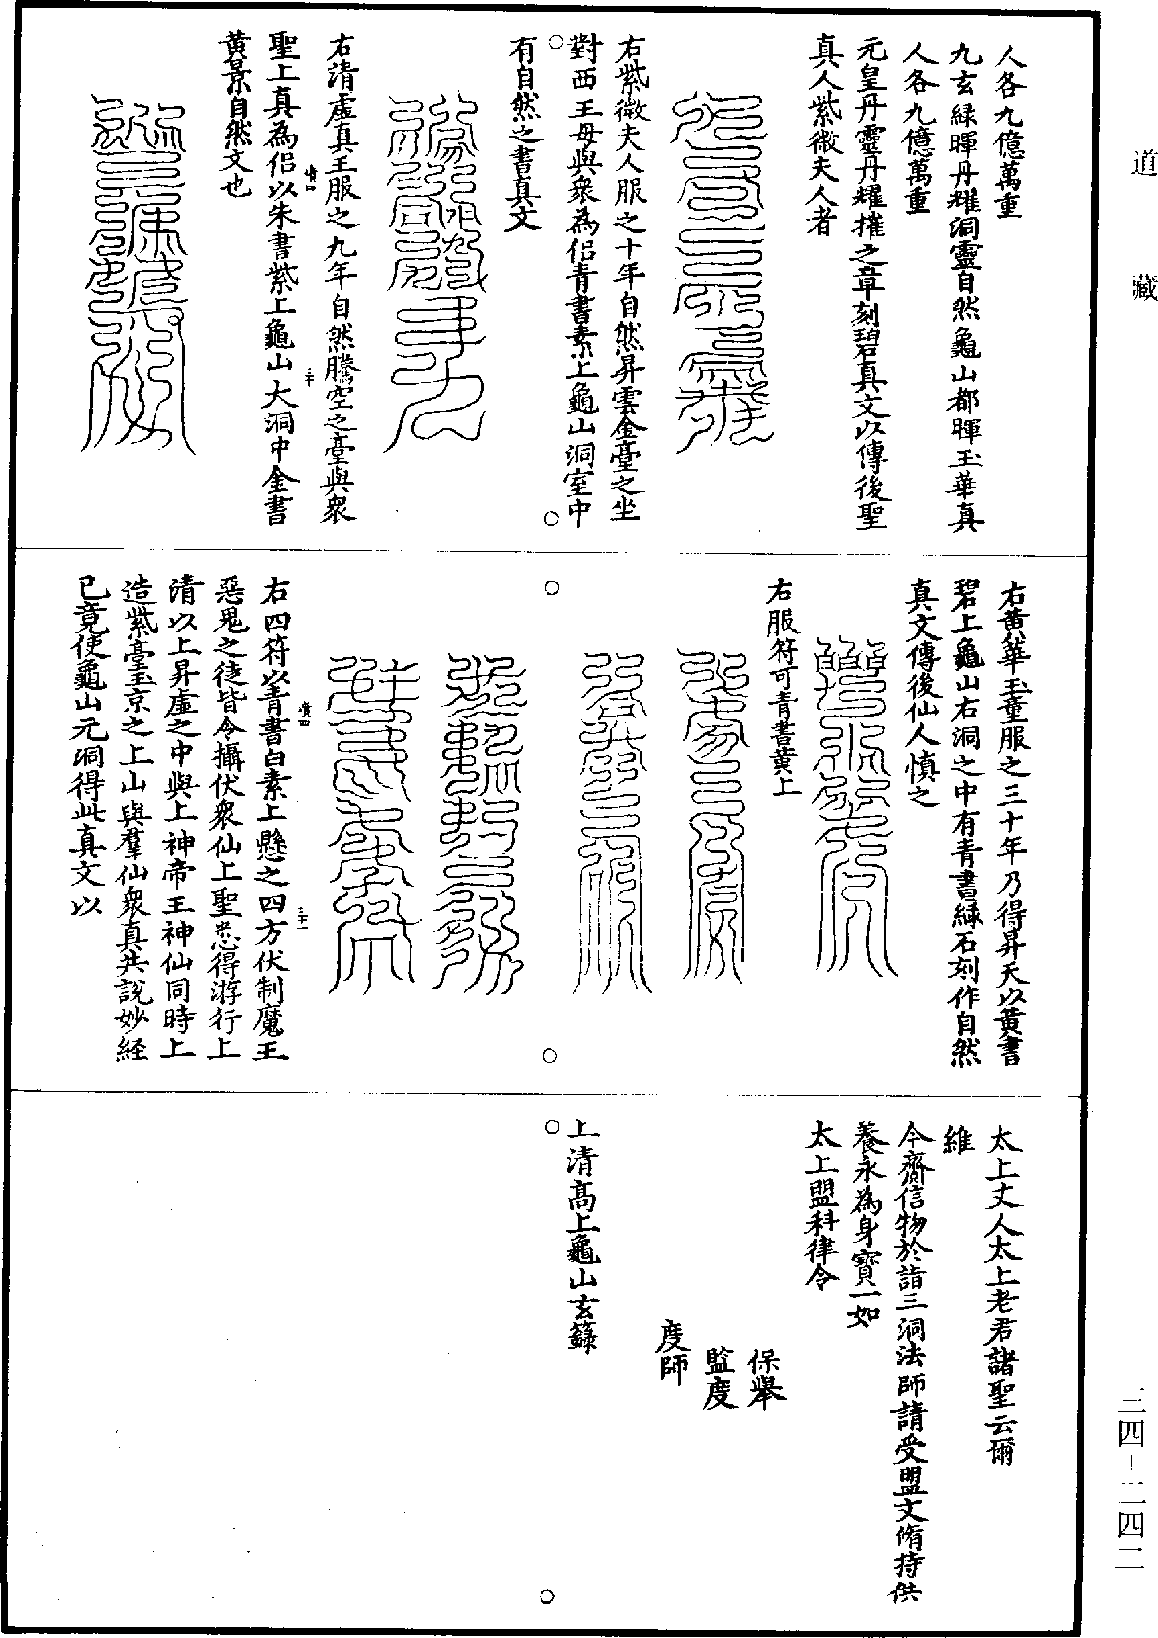 道藏
人各九億萬重
九玄緑暉丹耀洞靈自然龜山都暉玉華真
人各九億萬重
元皇丹靈丹耀摧之章刻碧真文以傳後聖
真人紫微夫人者
右紫微夫人服之十年自然昇雲金臺之坐
對西王母與衆為侣青書素上龜山洞室中
有自然之書真文
右清虛真王服之九年自然騰空之臺與衆
聖上真為侣以朱書紫上龜山大洞中金書
黃景自然文也
右黃華玉童服之三十年乃得昇天以黃書
碧上龜山右洞之中有青書緑石刻作自然
真文傳後仙人慎之
右服符可青書黃上
右四符以青書白素上懸之四方伏制魔王
惡鬼之徒皆令攝伏衆仙上聖悉得游行上
清以上昇虛之中與上神帝王神仙同時上
造紫臺玉京之上山與羣仙衆真共說妙経
已竟使龜山元洞得此真文以
太上丈人太上老君諸聖云爾
維
今齎信物於詣三洞法師請受盟文脩持供
養永為身寶一如
太上盟科律令
保舉
監度
度師
上清高上龜山玄籙
三四-二四二